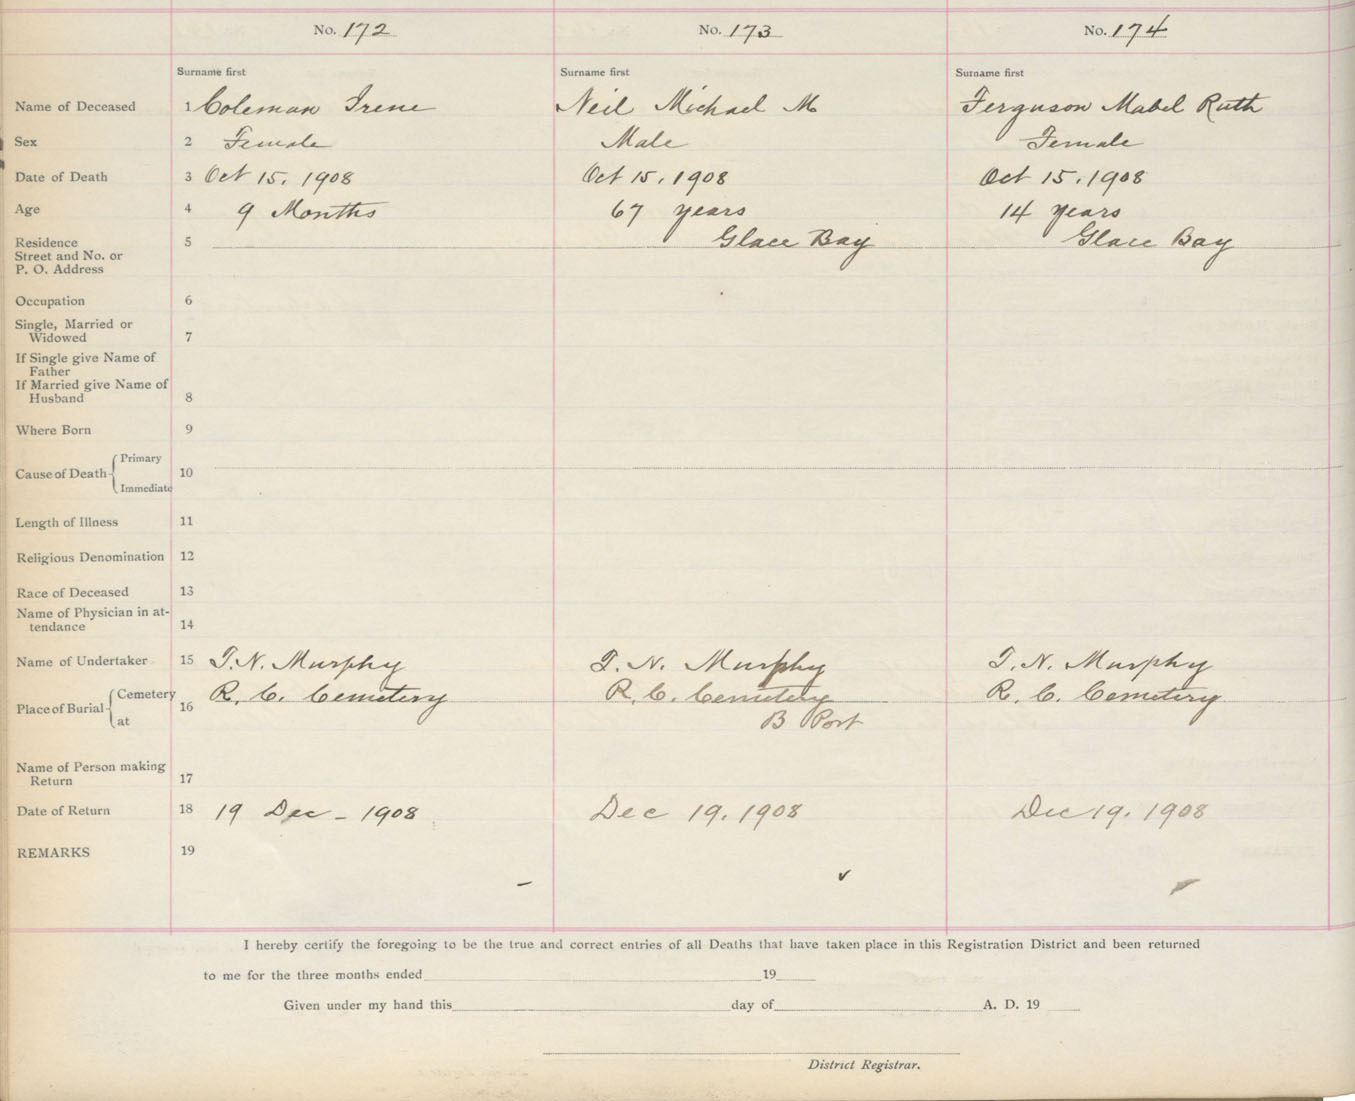 No. 172 No. 173 No. 174
Surname first Surname first Surname first
Name of Deceased 1 Coleman Irene Neil Michael M Ferguson Mabel Ruth
Sex 2 Female Male Female
Date of Death 3 Oct 15, 1908 Oct 15, 1908 Oct 15, 1908
Age 4 9 Months 67 years 14 years
Residence 5 Glace Bay Glace Bay
Street and No. or
P. O. Address
Occupation 6
Single, Married or
Widowed 7
If Single give Name of
Father
If Married give Name of
Husband 8
Where Born 9
Primary
Cause of Death 10
Immediate
Length of Illness 11
Religious Denomination 12
Race of Deceased 13
Name of Physician in at-
tendance 14
Name of Undertaker 15 T. N. Murphy T. N. Murphy T. N. Murphy
Cemetery R. C. Cemetery R. C. Cemetery R. C. Cemetery
Place of Burial 16
at B Port
Name of Person making
Return 17
Date of Return 18 19 Dec - 1908 Dec 19, 1908 Dec 19, 1908
REMARKS 19
I hereby certify the foregoing to be the true and correct entries of all Deaths that have taken place in this Registration District and been returned
to me for the three months ended 19
Given under my hand this day of A. D. 19
District Registrar.